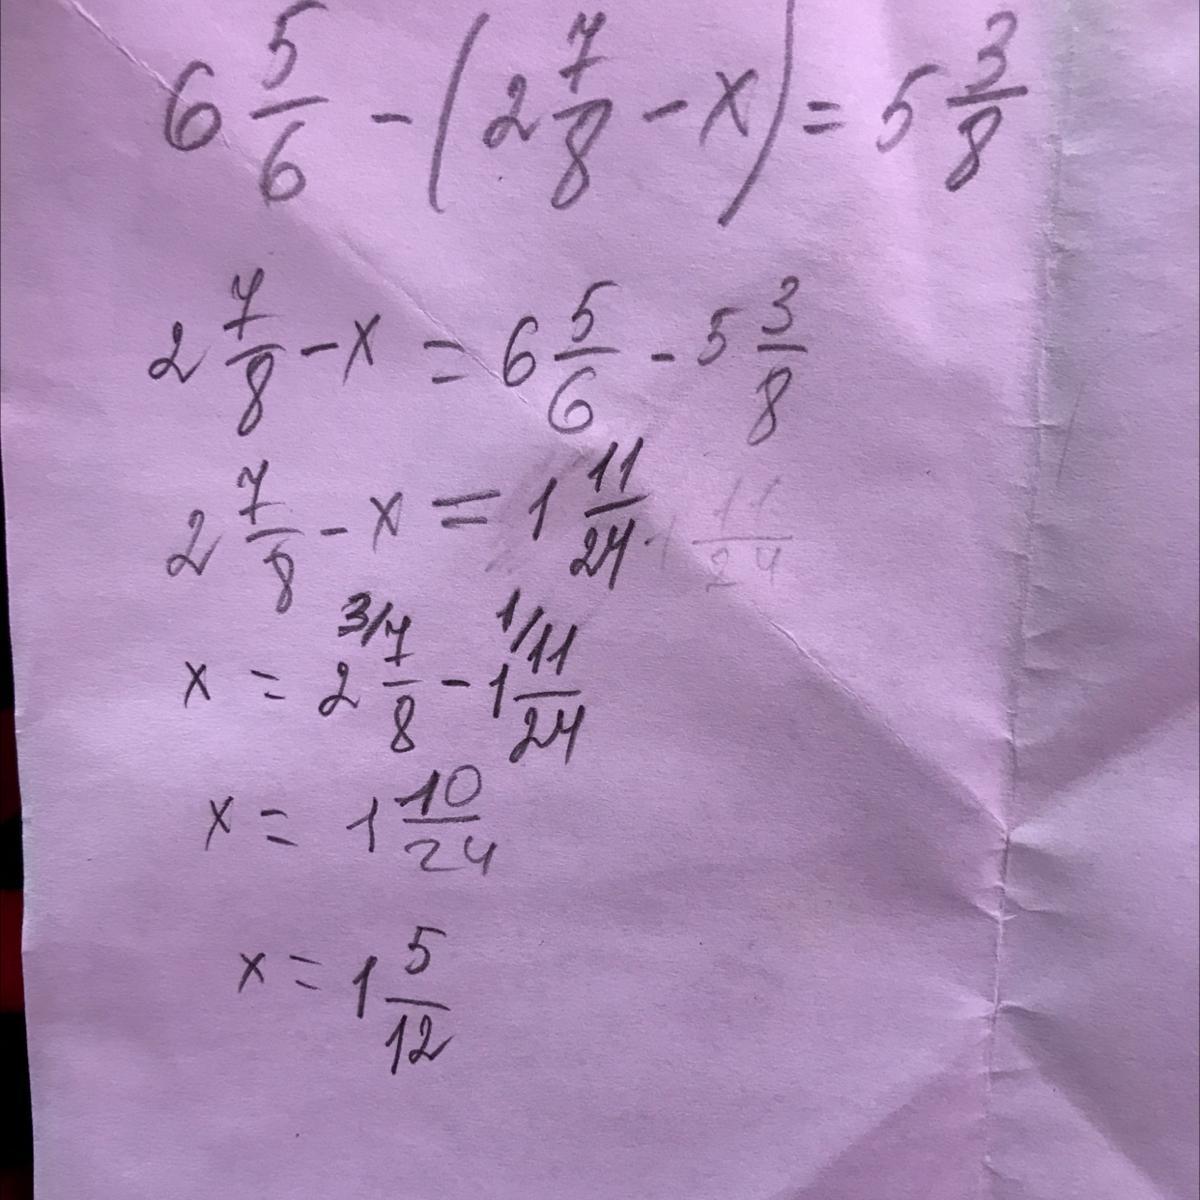 6 5/6 - (2 7/8 - x) = 5 3/8
2 7/8 - x = 6 5/6 - 5 3/8
2 7/8 - x = 1 11/24 1 11/24
x = 2 3/ 7/8 - 1 1/ 11/24
x = 1 10/24
x = 1 5/12